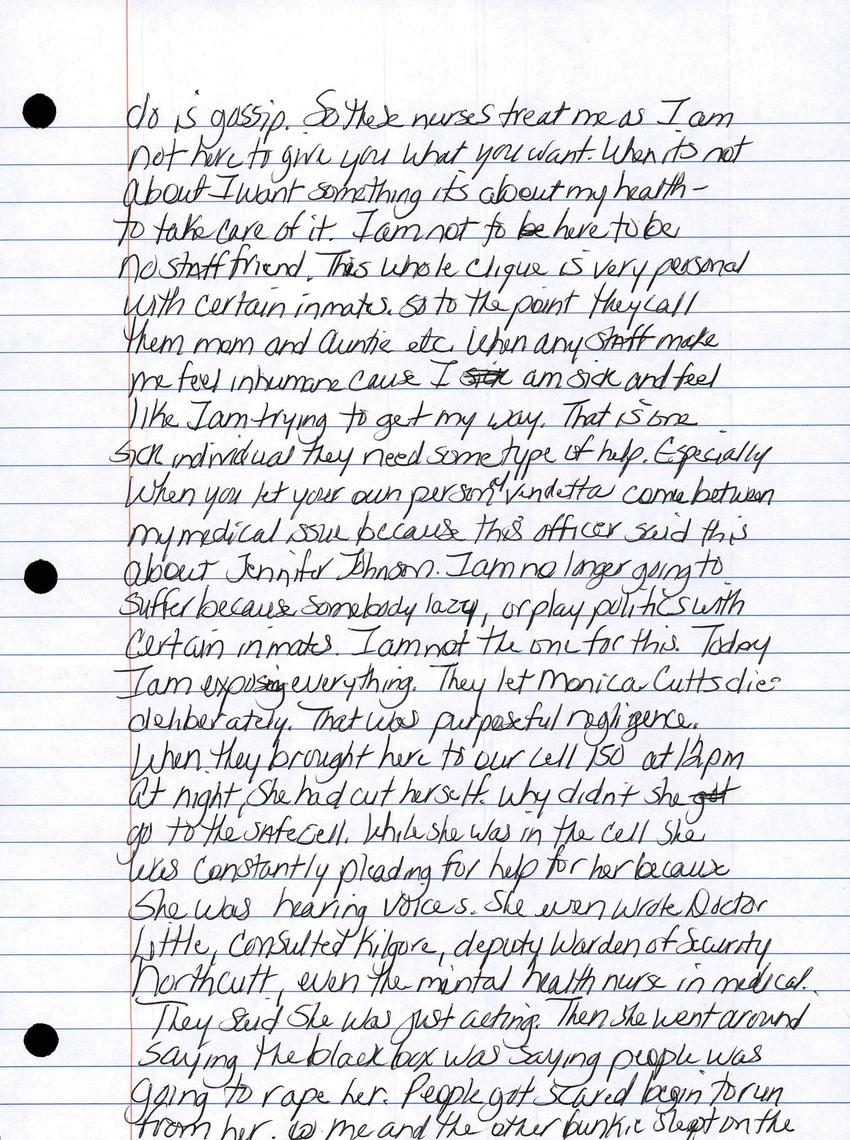 do is gossip. So these nurses treat me as I am
not here to give you what you want. When its not
about I want something it's about my health -
to take care of it. I am not to be here to be
no staff friend. This whole clique is very personal
with certain inmates. So to the point they call
them mom and Auntie etc. When any staff make
me feel inhumane cause I sick am sick and feel
like I am trying to get my way. That is one
sick individual they need some type of help. Especially
When you let your own personal vendetta come between
my medical issue because this officer said this
about Jennifer Johnson. I am no longer going to
suffer because somebody lazy, or play politics with
Certain inmates. I am not the one for this. Today
I am exposing everything. They let Monica Cutts die
deliberately. That was purposeful negligence.
When they brought here to our cell 150 at 12pm
at night, She had cut herself. Why didn't she got
go to the safe cell. While she was in the cell she
was constantly pleading for help for her because
She was hearing voices. She even wrote Doctor
Little, Consulted Kilgore, deputy Warden of Security
Northcutt, even the mental health nurse in medical.
They said She was just acting. Then she went around
saying the black box was saying people was
going to rape her. People got scared begin to run
from her. So me and the other bunkie slept on the